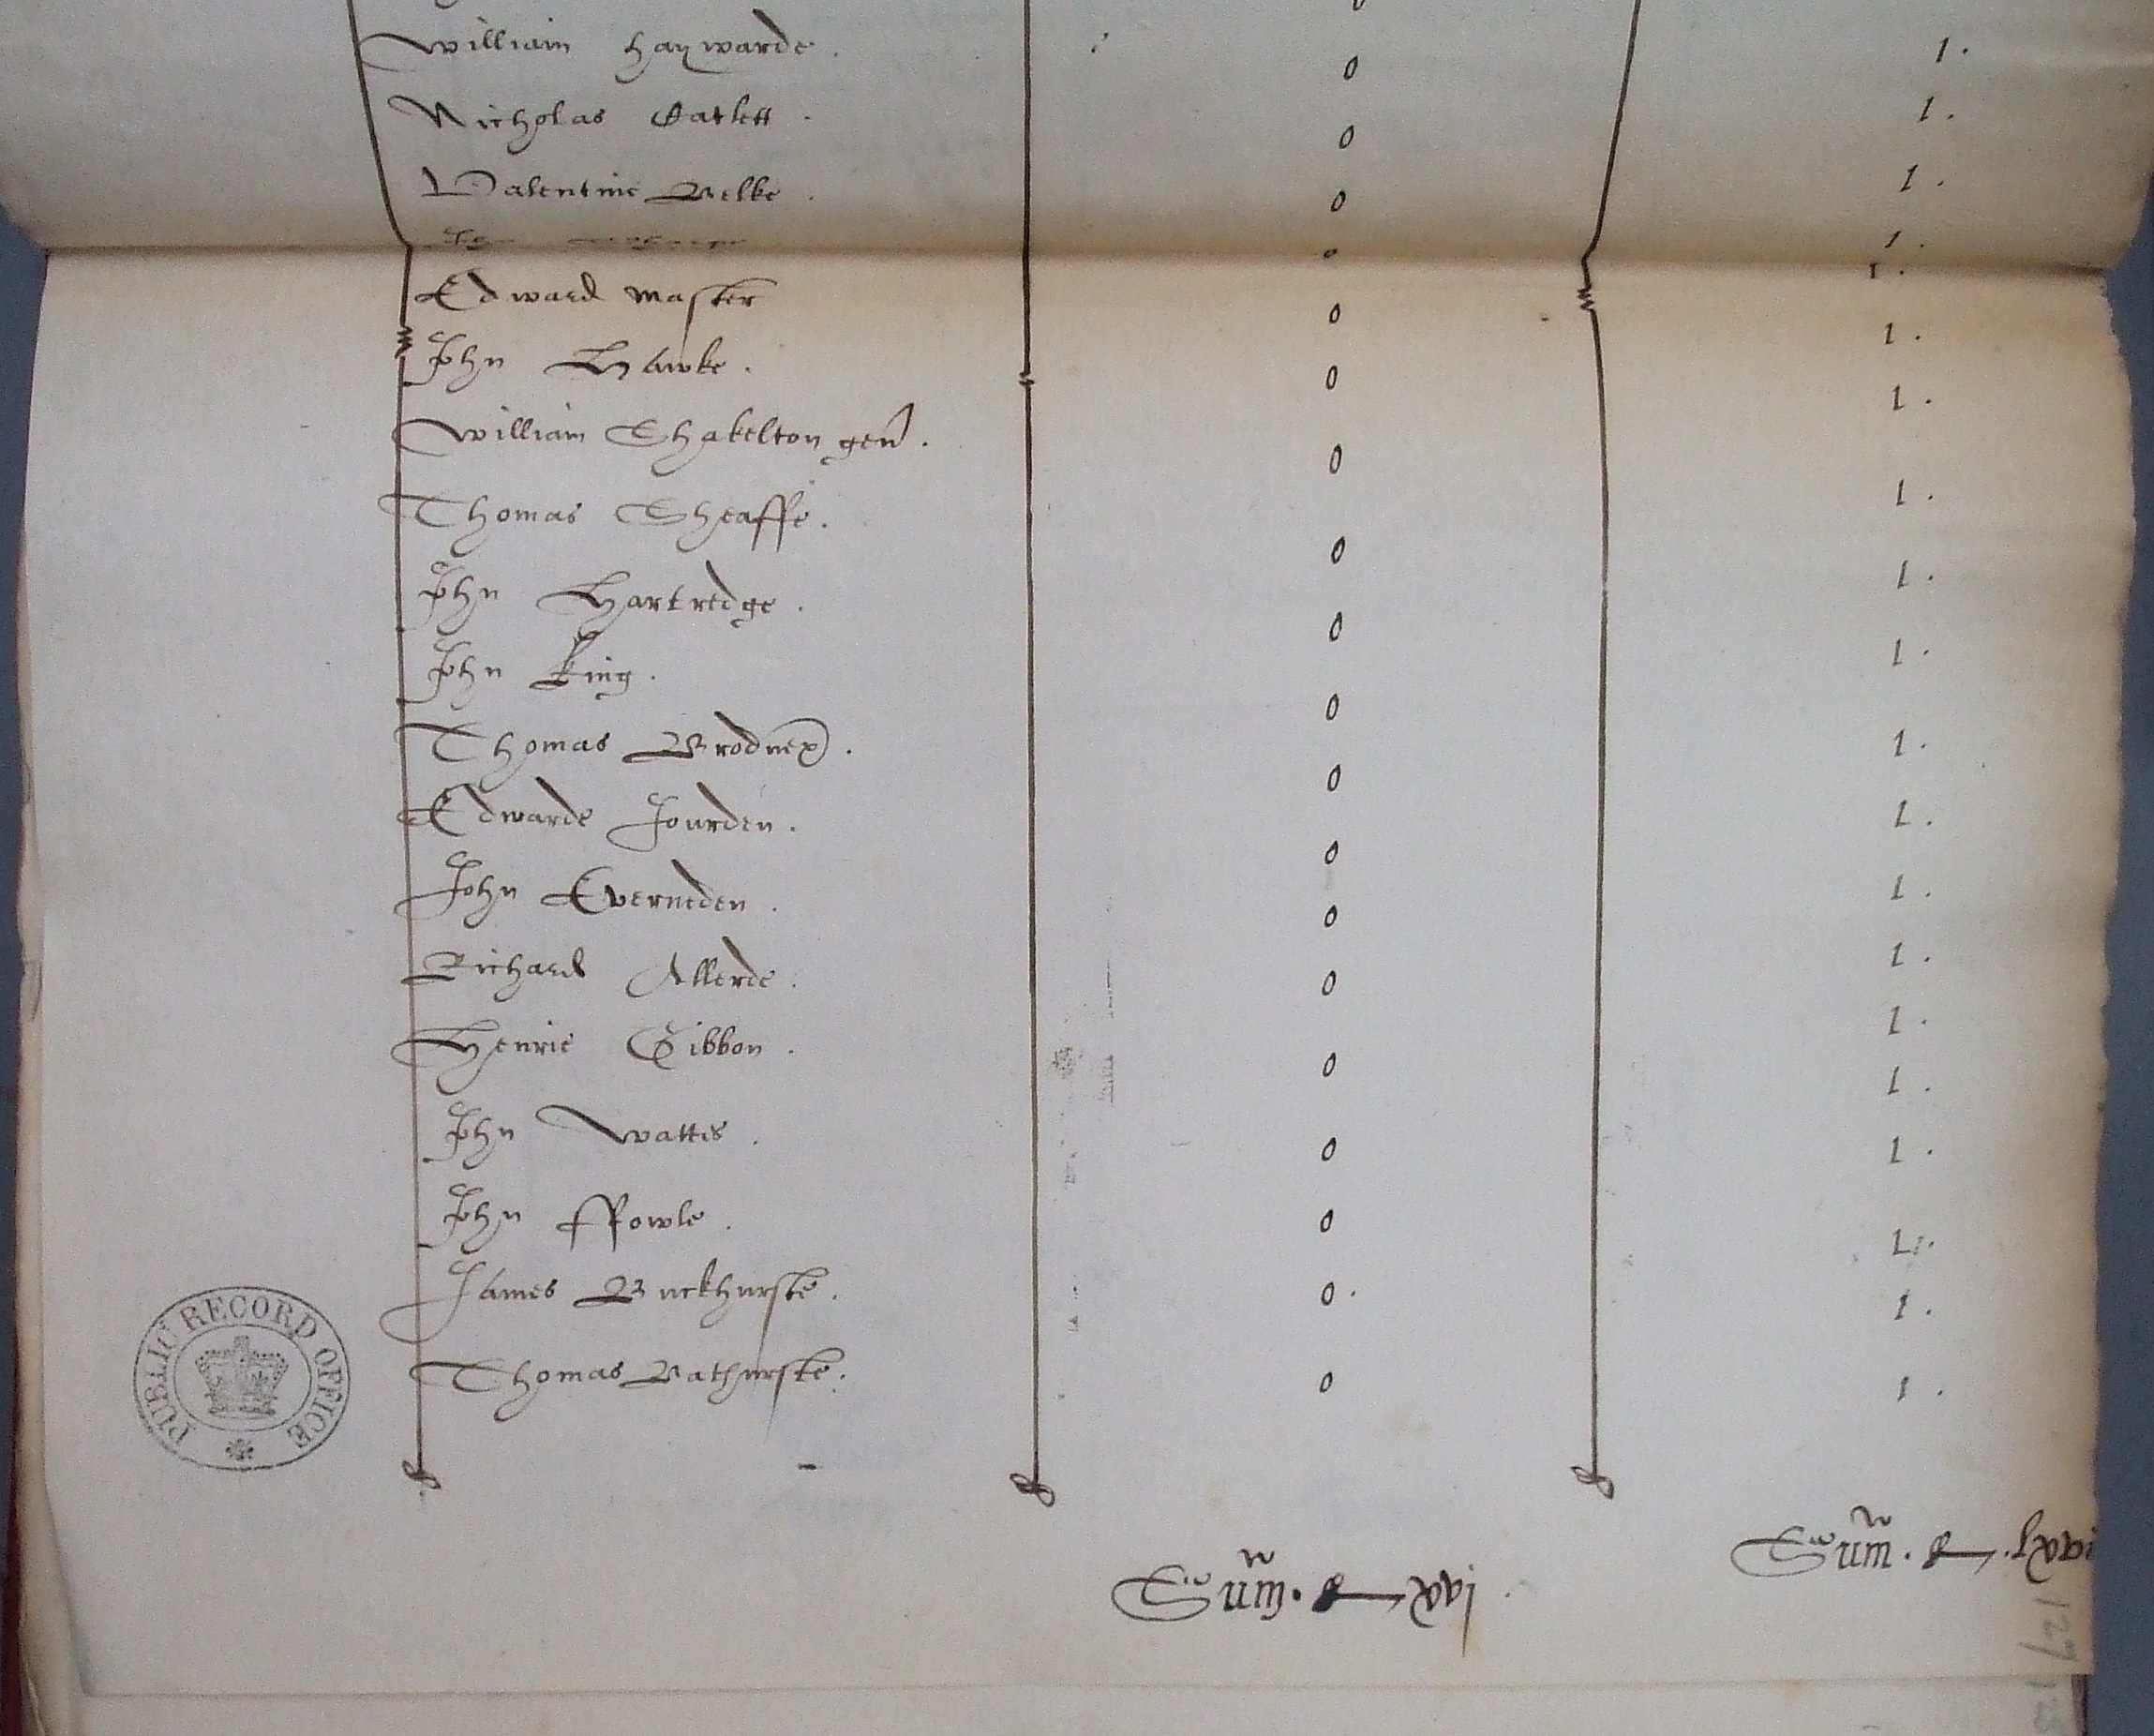 William haywarde . 0 1 .
Nicholas Catlett . 0 1 .
Valentine Belke . 0 1 .
0 1 .
Edward Master 0 1 .
John Hawke . 0 1 .
William Shakelton gen . 0 1 .
Thomas Sheaffe . 0 1 .
John Hartredge . 0 1 .
John King . 0 1 .
Thomas Brodnex . 0 1 .
Edwarde Jourden . 0 1 .
John Everneden . 0 1 .
Richard Allerde . 0 1 .
Henrie Gibbon . 0 1 .
John Wattes . 0 1 .
John ffowle . 0 1 .
James Buckhurste . 0 . 1 .
Thomas Bathurste . 0 1 .
Sum̃ . lxvi
Sum̃ . xvi
PUBLIC RECORD OFFICE
127